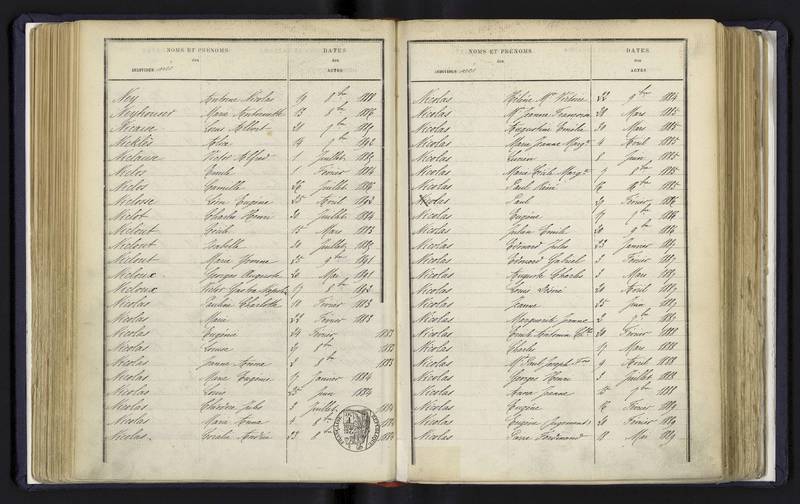 NOMS ET PRÉNOMS DATES
DES DES
INDIVIDUS nés ACTES
Ney Antoine Nicolas 19 8bre 1888
Neyhouser Marie Antoinette 13 8bre 1886
Louis Albert 9bre
14 9bre 1892
Victor Alfred 1 Juillet 1885
Niclos Emile 1 Février 1884
Niclos Camille 26 Juillet 1886
Niclosse Léon Eugène 25 Avril 1892
Niclot Charles Henri 30 Juillet 1884
Niclout 15 Mars 1883
Niclout Isabelle 30 Juillet 1885
Niclout Marie Yvonne 25 9bre 1891
Nicloux Georges Auguste 20 Mai 1891
Nicloux Victor Gaston 17 8bre 1892
Nicolas Pauline Charlotte 10 Février 1883
Nicolas Marie 22 Février 1883
Nicolas Eugénie 24 Février 1883
Nicolas Louise 8bre 1883
Nicolas Jeanne Anna 2 8bre 1883
Nicolas Marie Eugénie 17 Janvier 1884
Nicolas Louis 25 Juin 1884
Nicolas Jules 3 Juillet 1884
Nicolas Marie Anna 4 8bre 1884
Nicolas Coralie 23 8bre 1884
NOMS ET PRÉNOMS DATES
DES DES
INDIVIDUS nés ACTES
Nicolas Hélène Mie 22 9bre 1884
Nicolas Mie Jeanne Françoise 28 Mars 1885
Nicolas Augustine Emilie 30 Mars 1885
Nicolas Marie Jeanne Margte 4 Avril 1885
Nicolas Lucien 8 Juin 1885
Nicolas Marie Margte 7 8bre 1885
Nicolas Paul René 16 Xbre 1885
Nicolas Paul 27 Février 1886
Nicolas Eugène 17 7bre 1886
Nicolas Julien Emile 20 9bre 1886
Nicolas Edouard Jules 23 Janvier 1887
Nicolas Edouard Gabriel 3 Février 1887
Nicolas Auguste Charles 3 Mars 1887
Nicolas Louis Désiré 20 Avril 1887
Nicolas Jeanne 25 Juin 1887
Nicolas Marguerite Jeanne 2 9bre 1887
Nicolas Emile 20 Février 1888
Nicolas Charles 17 Mars 1888
Nicolas Paul Joseph 9 Avril 1888
Nicolas Georges Henri 3 Juillet 1888
Nicolas Anna Jeanne 15 7bre 1888
Nicolas Eugène 16 Février 1889
Nicolas Eugène 20 Février 1889
Nicolas Pierre Ferdinand 18 Mai 1889